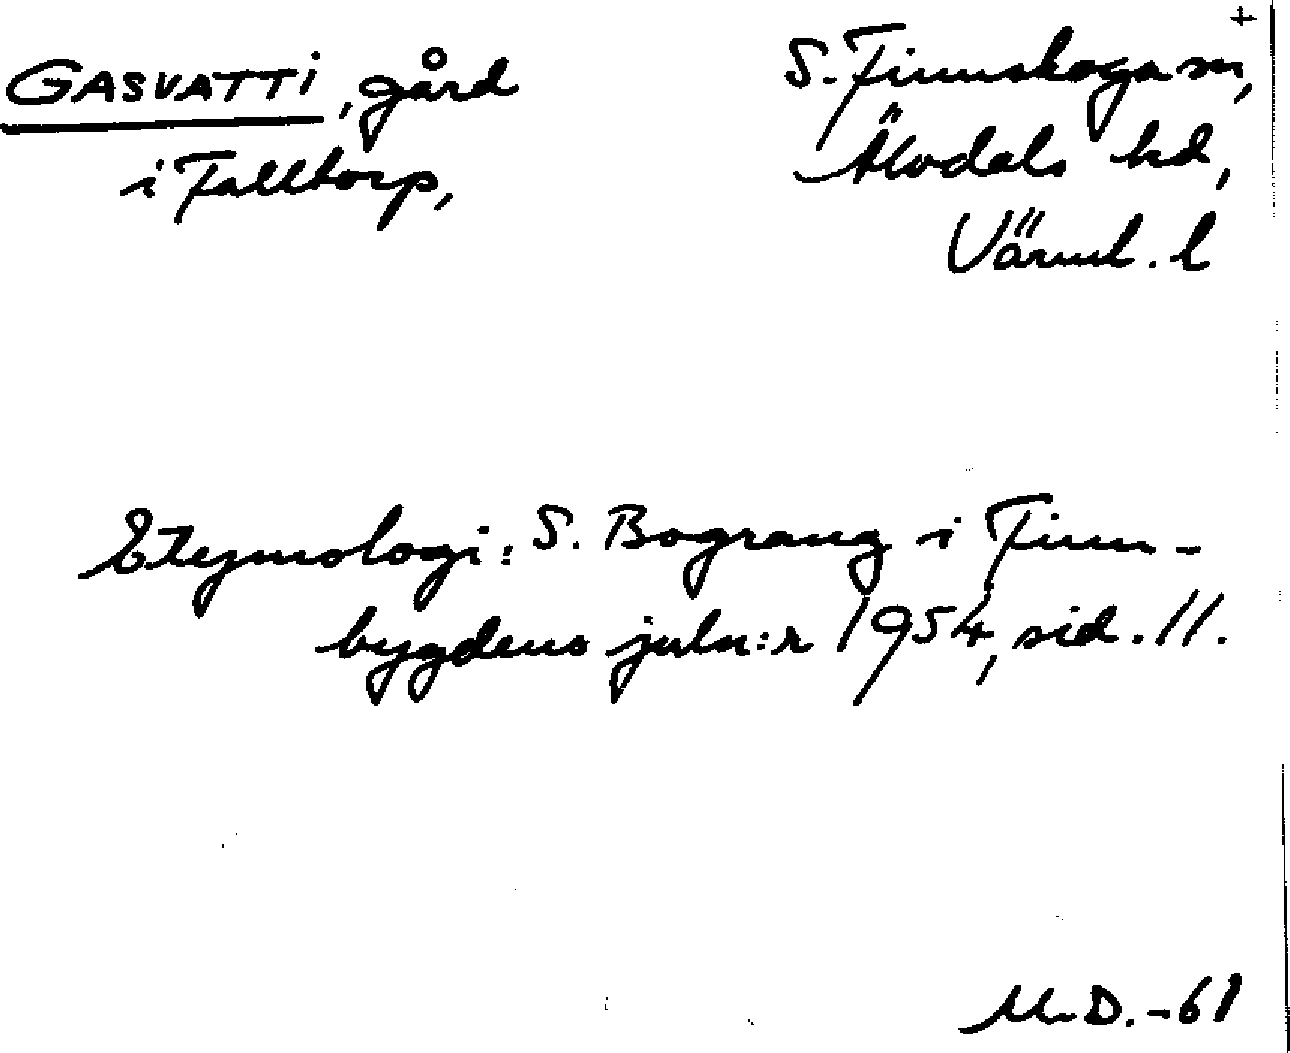 GASVATTI, gård
i Falltorp,
S. Finnskoga sn,
Älvdals hd,
Värml. l
Etymologi: S. Bograng i Finn-
bygdens juln:r 1954, sid. 11.
M.D. -61